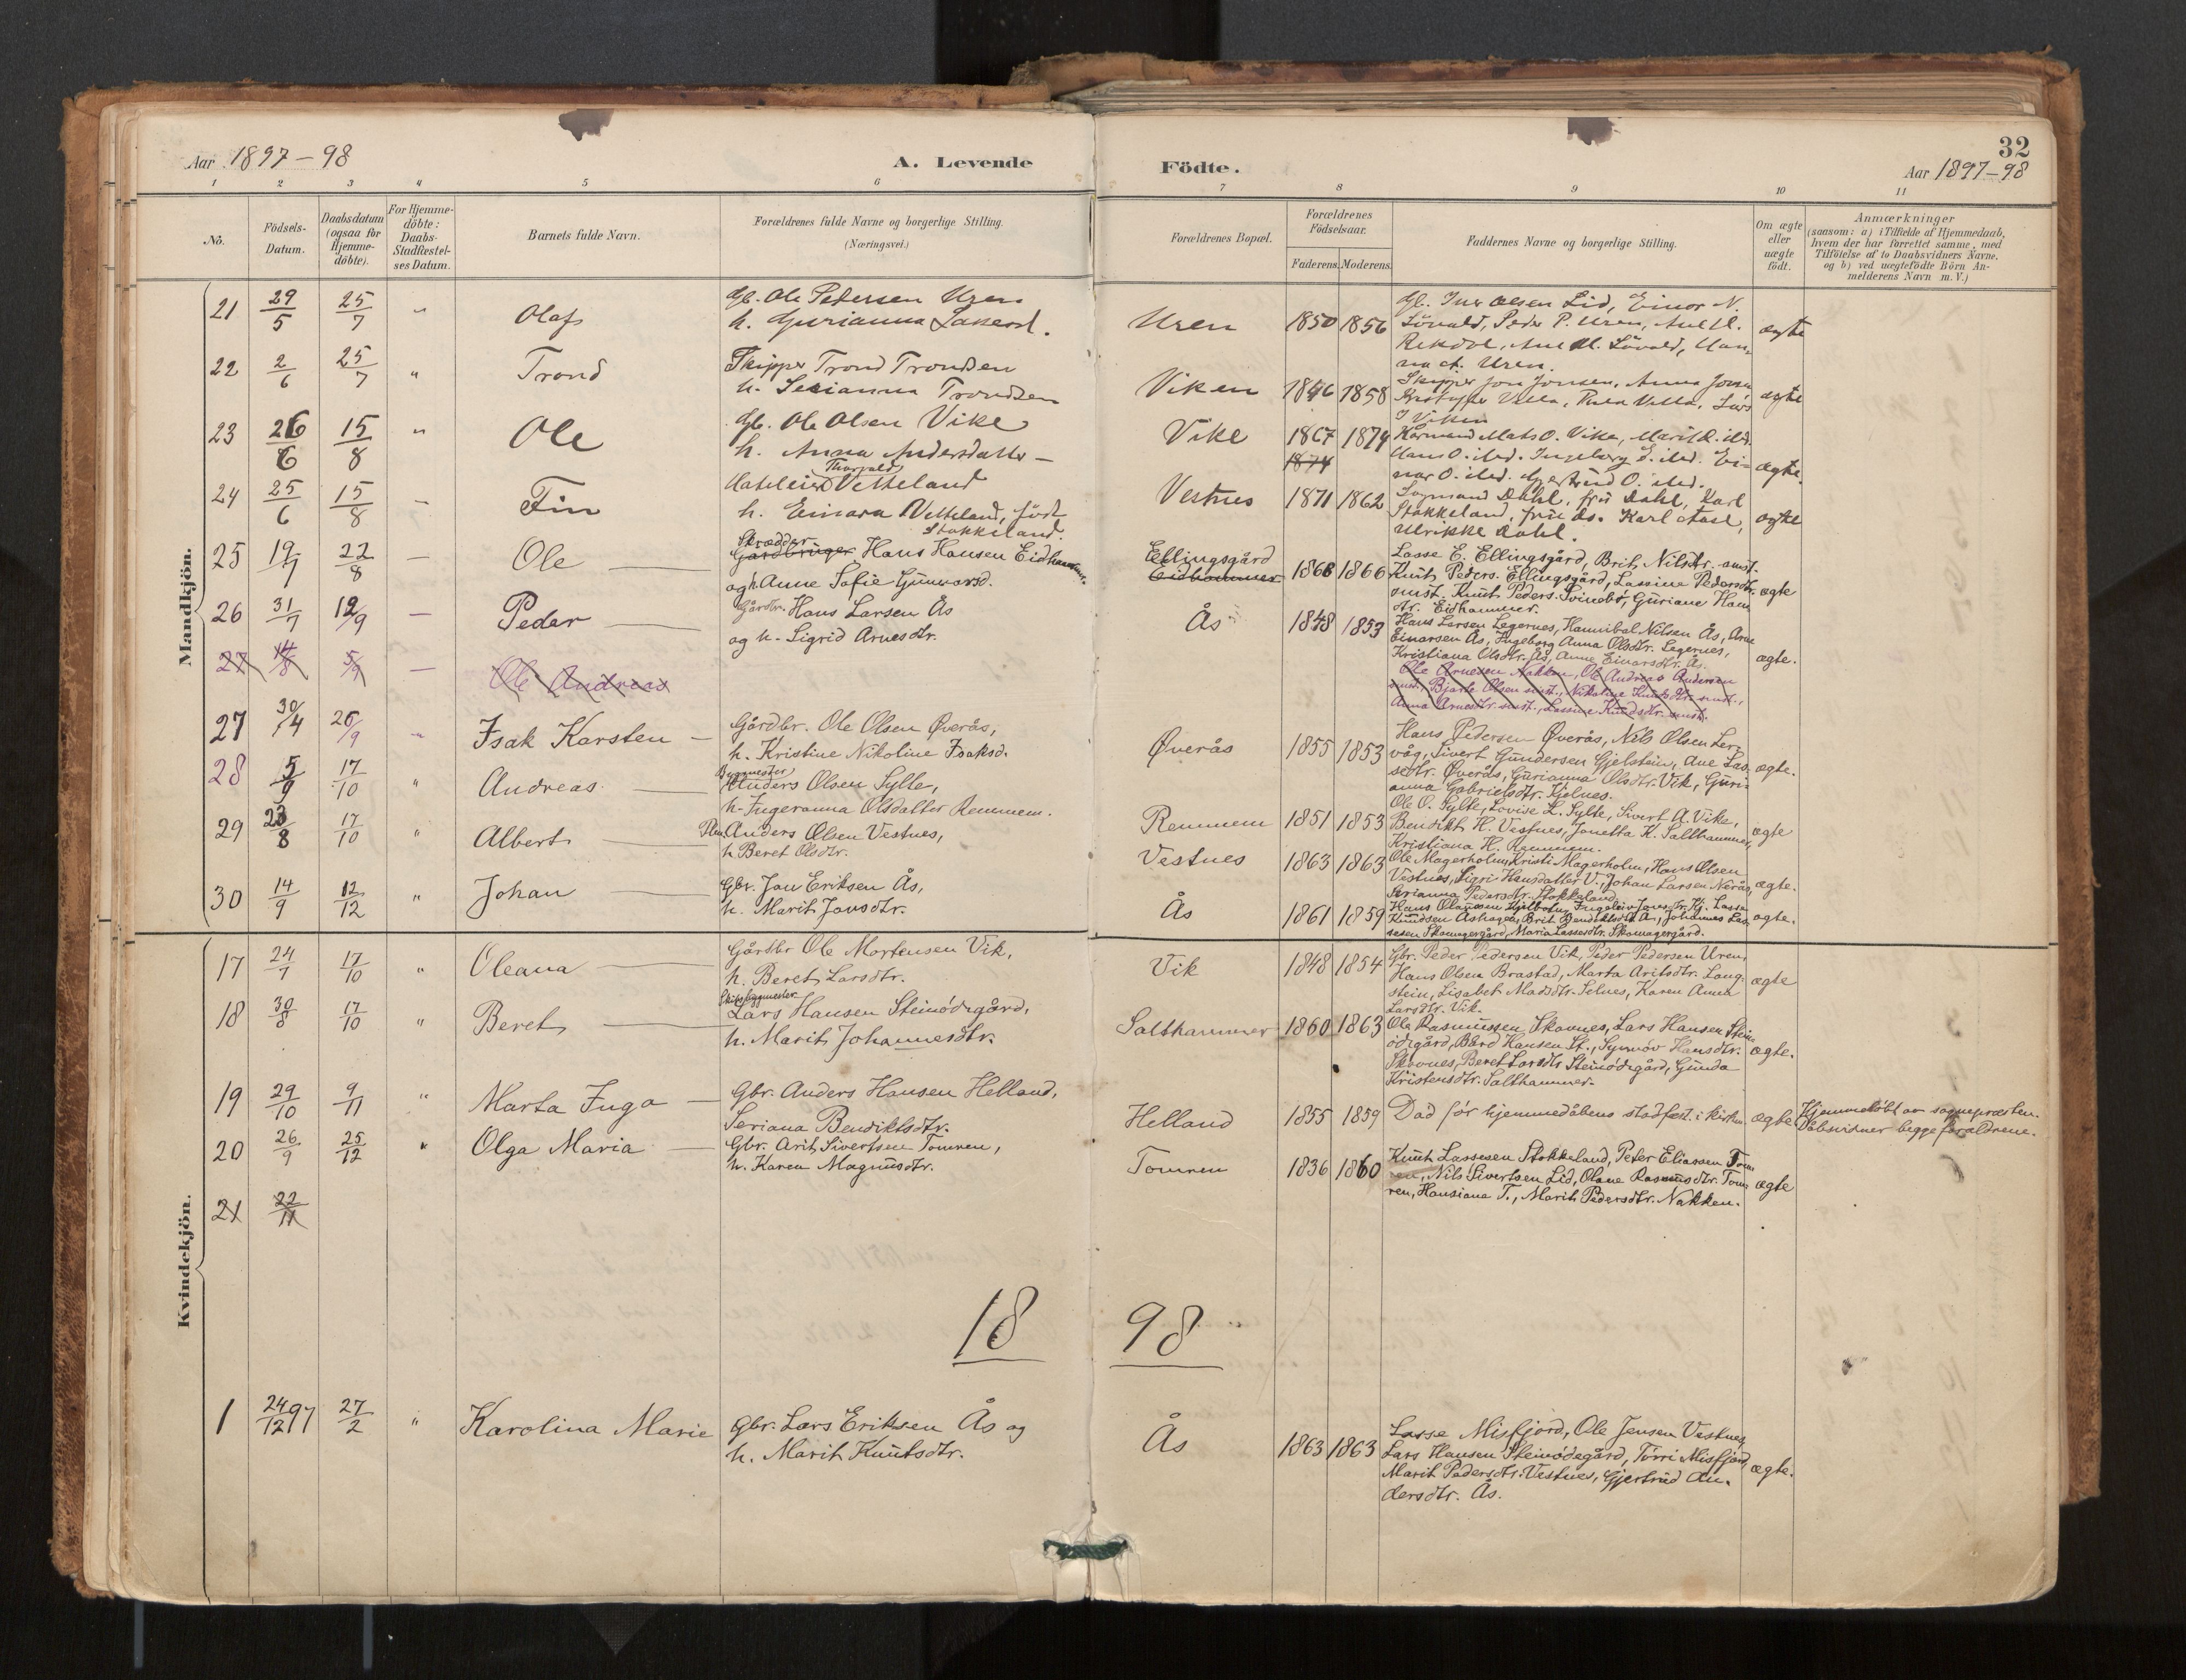 Aar 1897-98
A. Levende
Födte.
32
Aar 1897-98
1 2 3 4 5 6 7 8 9 10 11
No.
Födsels-
Datum.
Daabsdatum
(ogsaa for
Hjemme-
döbte).
For Hjemme-
döbte:
Daabs-
Stadfæstel-
ses Datum.
Barnets fulde Navn.
Forældrenes fulde Navne og borgerlige Stilling.
(Næringsvei.)
Forældrenes Bopæl.
Forældrenes
Födselsaar.
Faderens. Moderens.
Faddernes Navne og borgerlige Stilling.
Om ægte
eller
uægte
födt.
Anmærkninger
(saasom: a) i Tilfælde af Hjemmedaab,
hvem der har forrettet samme, med
Tilföielse af to Daabsvidners Navne,
og b) ved uægtefödte Börn An-
melderens Navn m. V.)
Mandkjön.
21 29/5 25/7 " Olaf
Gb. Ole Pedersen Uren
h. Gurianna
Uren 1850 1856
Lid, Einar N.
Peder P. Uren,
ægte
22 2/6 25/7 " Trond
Skipper Trond Trondsen
h. Serianna Trondsen
Viken 1846 1858
Skipper Jon Jonsen, Anna
ægte
23 26/6 15/8 " Ole
Gb. Ole Olsen Vike
h. Anna Andersdatter -
Vike 1867 1874
1874
Mats O. Vike, Marit
Hans O. ibd. Ingeborg E. ibd. Ei-
nar O. ibd. Gjertrud O. ibd.
ægte.
24 25/6 15/8 - Fin
Thorvald
Hoteleier Vetteland
h. Einara Vetteland, födt
Stokkeland.
Vestnes 1871 1862
Dahl, frú Dahl, Karl
Stokkeland, frú ds. Karl
Ulrikke Dahl.
ægte
25 19/7 22/8 - Ole
Skrædder
Gårdbruger Hans Hansen Eidhammer.
og h. Anne Sofie Gunnarsd.
Ellingsgård
Eidhammer 1868 1866
Lasse E. Ellingsgård, Brit Nilsdtr. smst.
Knút Peders. Ellingsgård, Lassine Pedersdtr.
smst. Knút Peders. Svinebö, Gúriane Hans
dtr. Eidhammer.
ægte
26 31/7 12/9 - Peder
Gårdbr. Hans Larsen Ås
og h. Sigrid Arnesdtr.
Ås 1848 1853
Hans Larsen Legernes, Hannibal Nilsen Ås, Arne
Einarsen Ås, Ingeborg Anna Olsdtr. Legernes,
Kristiana Olsdtr. Ås, Anne Einarsdtr. Ås.
ægte.
27 14/8 5/9 - Ole Andreas
Ole Arnesen Nakken, Ole Andreas Andersen
smst., Bjarte Olsen smst., Nikoline Knutsdtr. smst.,
Anna Arnesdtr. smst., Lassine Knudsdtr. smst.
27 30/4 26/9 " Isak Karsten
Gårdbr. Ole Olsen Øverås,
h. Kristine Nikoline Isaksd.
Øverås 1855 1853
Hans Pedersen Øverås, Nils Olsen Ler-
våg, Sivert Gundersen Gjelstein, Ane Las-
sedtr. Øverås, Gurianna Olsdtr. Vik, Gúri-
anna Gabrielsdtr. Kjelnes.
ægte.
28 5/9 17/10 " Andreas
Bygmester
Anders Olsen Sylte,
h. Ingeranna Olsdatter Remmem.
Remmem 1851 1853
Ole O. Sylte, Lovise L. Sylte, Sivert A. Vike,
Bendikt H. Vestnes, Jonetta K. Salthammer,
Kristiana H. Remmem.
ægte
29 23/8 17/10 " Albert
Anders Olsen Vestnes,
h. Beret Olsdtr.
Vestnes 1863 1863
Ole Magerholm, Kristi Magerholm, Hans Olsen
Vestnes, Sigri Hansdatter V., Johan Larsen Nerås,
Serianna Pedersdtr. Stokkeland.
ægte.
30 14/9 12/12 " Johan
Gbr. Jan Eriksen Ås,
h. Marit Jonsdtr.
Ås 1861 1859
Hans Olausen Kjelbotn, Lasse
Knudsen Åshagen, Brit Bendiktsdtr. A., Johannes Las-
sesen Skomagergård, Maria Lassesdtr. Skomagergård.
ægte.
Kvindekjön.
17 24/7 17/10 " Oleana
Gårdbr Ole Mortensen Vik,
h. Beret Larsdtr.
Vik 1848 1854
Gbr. Peder Pedersen Vik, Peder Pedersen Uren,
Hans Olsen Brastad, Marta Aritsdtr. Lang-
stein, Lisabet Madsdtr. Selnes, Karen Anna
Larsdtr. Vik.
ægte
18 30/8 17/10 " Beret
Skibsbygmester
Lars Hansen Steinödegård,
h. Marit Johannesdtr.
Salthammer 1860 1863
Ole Rasmussen Skavnes, Lars Hansen Stein-
ödegård, Bård Hansen St., Synnöv Hansdtr.
Skavnes, Beret Larsdtr Steinödegård, Gúnda
Kristensdtr. Salthammer.
ægte.
19 29/10 9/11 " Marta Inga
Gbr. Anders Hansen Helland,
Seriana Bendiktsdtr.
Helland 1855 1859
Död för hjemmedåbens stadfæst. i kirken.
ægte
Hjemmedöbt av sognepræsten.
Dåbsvidner begge forældrene.
20 26/9 25/12 " Olga Maria
Gbr. Arit Sivertsen Tomren,
h. Karen Magnúsdtr.
Tomren 1836 1860
Knút Lassesen Stokkeland, Peter Eliassen Tom-
ren, Nils Sivertsen Lid, Olane Rasmusdtr. Tom-
ren, Hansiana T., Marit Pedersdtr. Nakken.
ægte
21 22/11
18 98
1 24/12 97 27/2 " Karolina Marie
Gbr. Lars Eriksen Ås og
h. Marit Knútsdtr.
Ås 1863 1863
Lasse Misfjord, Ole Jensen Vestnes,
Lars Hansen Steinödegård, Törri Misfjord,
Marit Pedersdtr. Vestnes, Gjertrúd An-
dersdtr. Ås.
ægte.